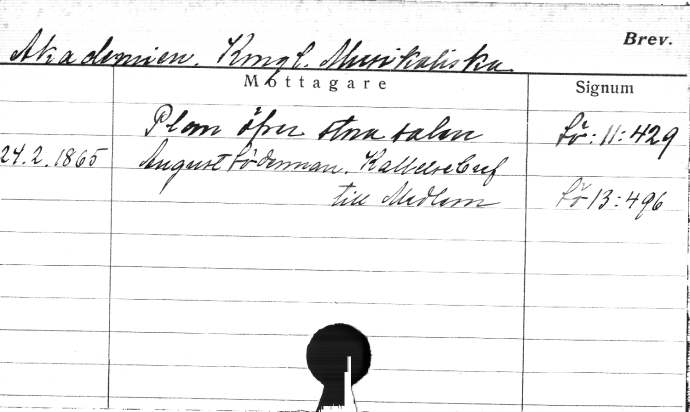 Brev.
Akademien, Kungl. Musikaliska
Mottagare Signum
Plan öfver stora salen Sö: 11: 429
24.2.1865 August Söderman. Kallelsebref
till Medlem Sö 13: 496